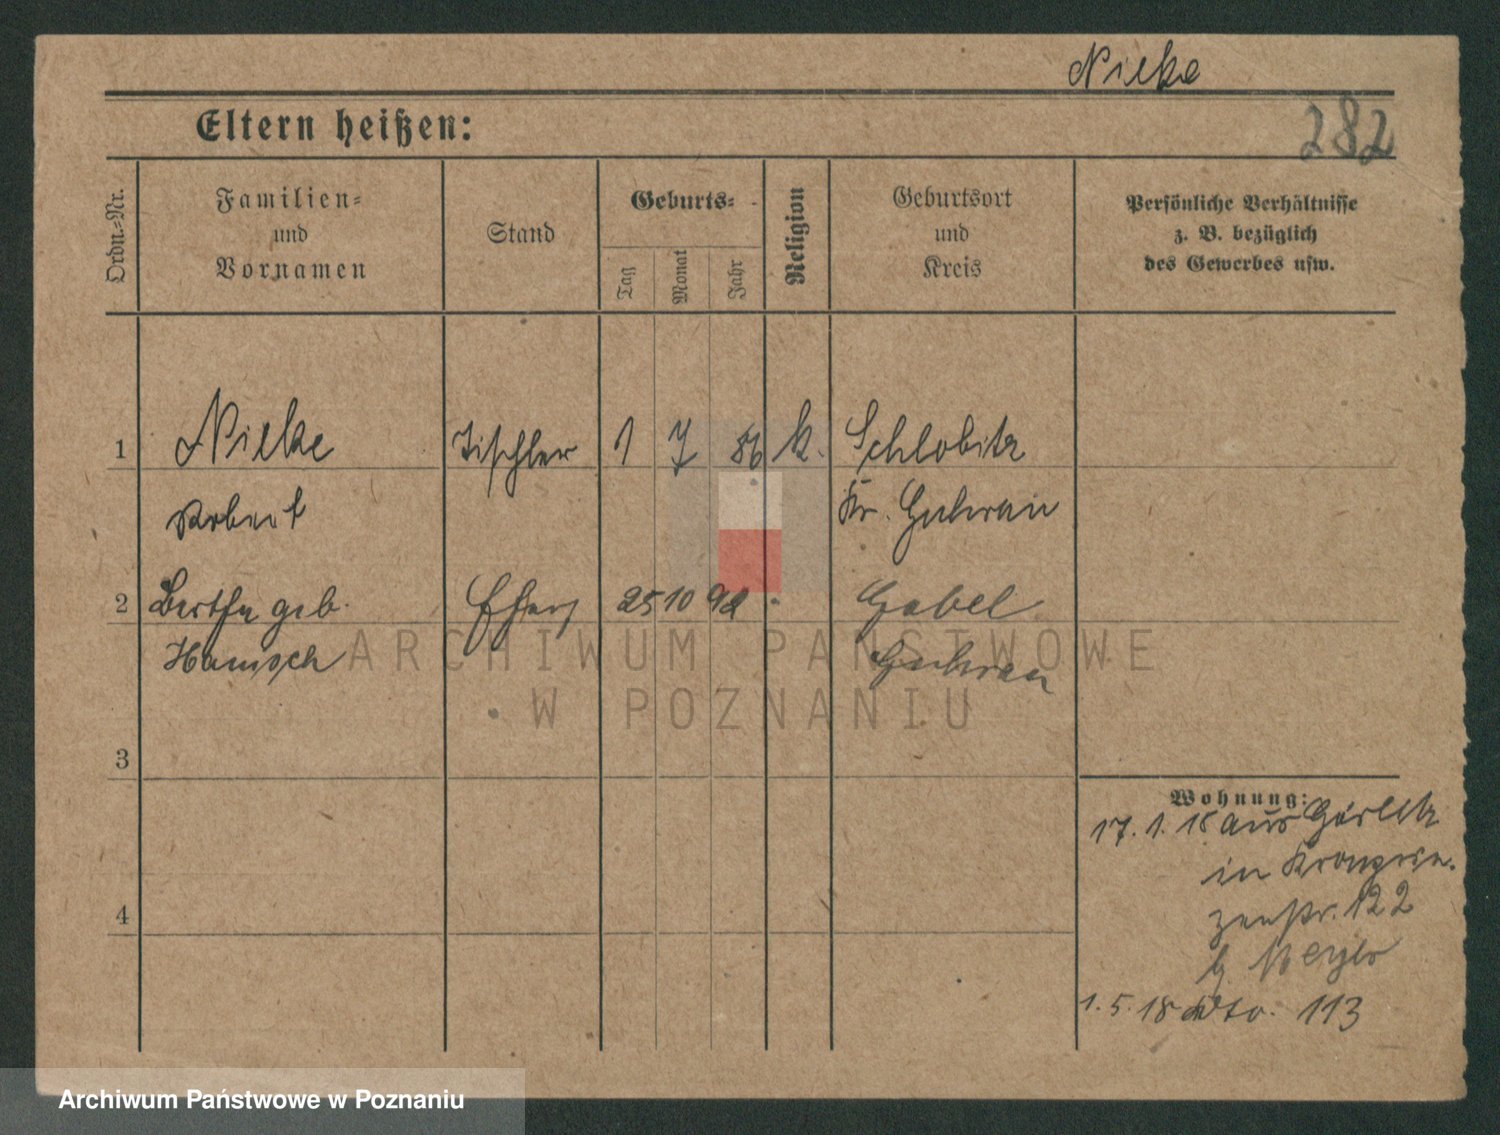 Nielke
282
Eltern heißen:
Ordn.=Nr.
Familien=
und
Vornamen
Stand
Geburts=
Tag
Monat
Jahr
Religion
Geburtsort
und
Kreis
Persönliche Verhältnisse
z. B. bezüglich
des Gewerbes usw.
1 Nielke Tischler 1 7 86 k. Schlobitz
Robert Kr. Guhrau
2 Bertha geb. 25 10 92 Gabel
Hanisch Guhrau
3
4
Wohnung:
17. 1. 18 aus Görlitz
in Kronprin.
zenstr. 122
b Meyer
1. 5. 18 dto. 113
ARCHIWUM PAŃSTWOWE
W POZNANIU
Archiwum Państwowe w Poznaniu